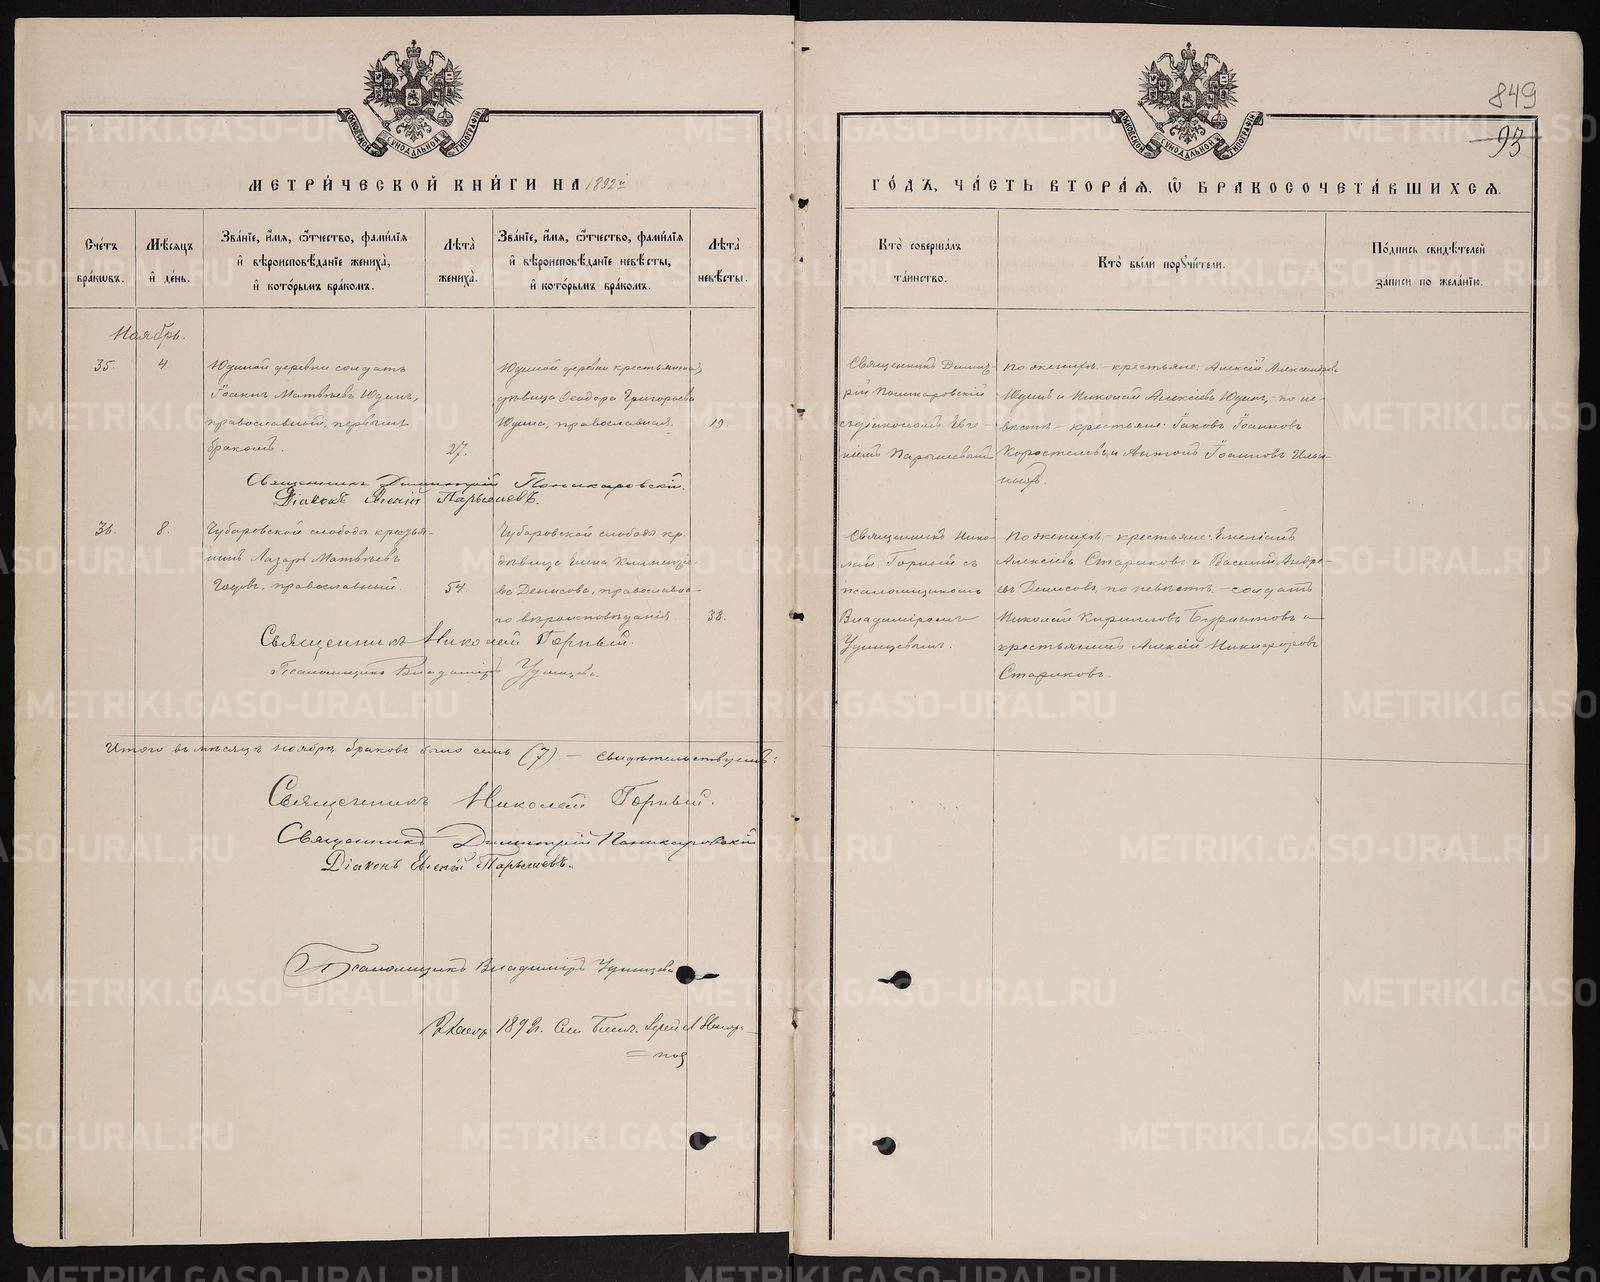 849
93
МЕТРИ́ЧЕСКОЙ КНИ́ГИ НА 1892й
ГО́ДЪ, ЧА́СТЬ ВТОРА́Я, Ѽ БРАКОСОЧЕТА́ВШИХСЯ.
Сче́тъ бра́ковъ.
Мѣ́сяцъ и҆ де́нь.
Зва́нїе, и҆́мя, ѻ҆́тчество, фами́лїѧ и҆ вѣроисповѣ́данїе жениха̀, и҆ кото́рымъ бра́комъ.
Лѣта̀ жениха̀.
Зва́нїе, и҆́мя, ѻ҆́тчество, фами́лїѧ и҆ вѣроисповѣ́данїе невѣ́сты, и҆ кото́рымъ бра́комъ.
Лѣта̀ невѣ́сты.
Кто̀ соверша́лъ та́инство.
Кто̀ бы́ли порꙋчи́тели.
По́дпись свидѣ́телей за́писи по жела́нїю.
Ноябрь.
35.
4
Юдиной деревни солдатъ
Іоаннъ Матвѣевъ Юдинъ,
православный, первымъ
бракомъ.
27.
Юдиной деревни крестьянская
дѣвица Ѳеодора Григорьева
Юдина, православная.
19.
Священникъ Димит-
рій Поникаровскій
съ діакономъ Евге-
ніемъ Парышевымъ
По женихѣ – крестьяне: Алексій Александровъ
Юдинъ и Николай Алексіевъ Юдинъ, по не-
вѣстѣ – крестьяне: Іаковъ Іоанновъ
Коростелевъ и Антоній Іоанновъ Ильи-
ныхъ.
Священникъ Димитрій Поникаровскій.
Діаконъ Евгеній Парышевъ.
36.
8.
Чубаровской слободы крестья-
нинъ Лазарь Матвѣевъ
православный.
54.
Чубаровской слободы кр.
дѣвица Елена
Денисова, православна-
го вѣроисповѣданія
38.
Священникъ Нико-
лай Горный съ
псаломщикомъ
Владиміромъ
Удинцевымъ.
По женихѣ – крестьяне: Емеліанъ
Алексіевъ Стариковъ и Василій Андре-
евъ Денисовъ, по невѣстѣ – солдатъ
Николай Кирилловъ и
крестьянинъ Алексій Никифоровъ
Стариковъ.
Священникъ Николай Горный.
Псаломщикъ Владиміръ Удинцевъ.
Итого въ мѣсяцѣ ноябрѣ браковъ было семь (7). – Свидѣтельствуемъ:
Священникъ Николай Горный.
Священникъ Димитрій Поникаровскій
Діаконъ Евгеній Парышевъ.
Псаломщикъ Владиміръ Удинцевъ
1892г.